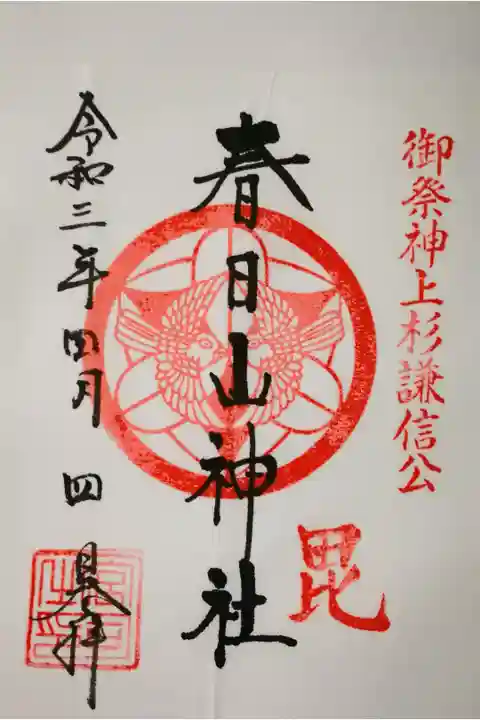 御祭神上杉謙信公
毘
春日山神社
令和三年四月四日奉拝